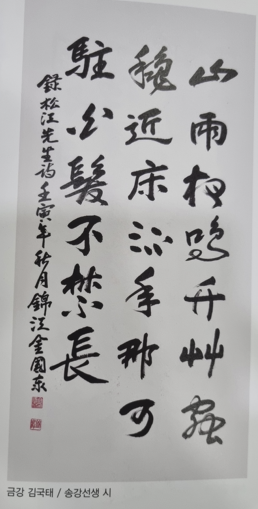 山雨夜鳴竹艸蟲
秋近床流年那可
駐白髮不禁長
錄松江先生詩壬寅年秋月錦江金國泰
금강 김국태 / 송강선생 시